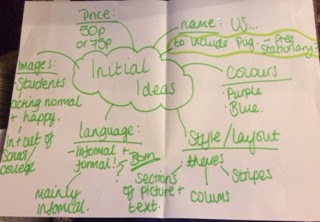 Price:
50p
or 75p
name: US...
to include Pug - free
stationary.
Images:
Students
acting normal
+ happy.
in + out of
school/
college
Initial
Ideas
Colours
Purple
Blue.
Language:
- Informal +
formal!
Both
?
mainly
informal.
Style/layout
themes
Stripes
Sections
of picture +
text.
Colums